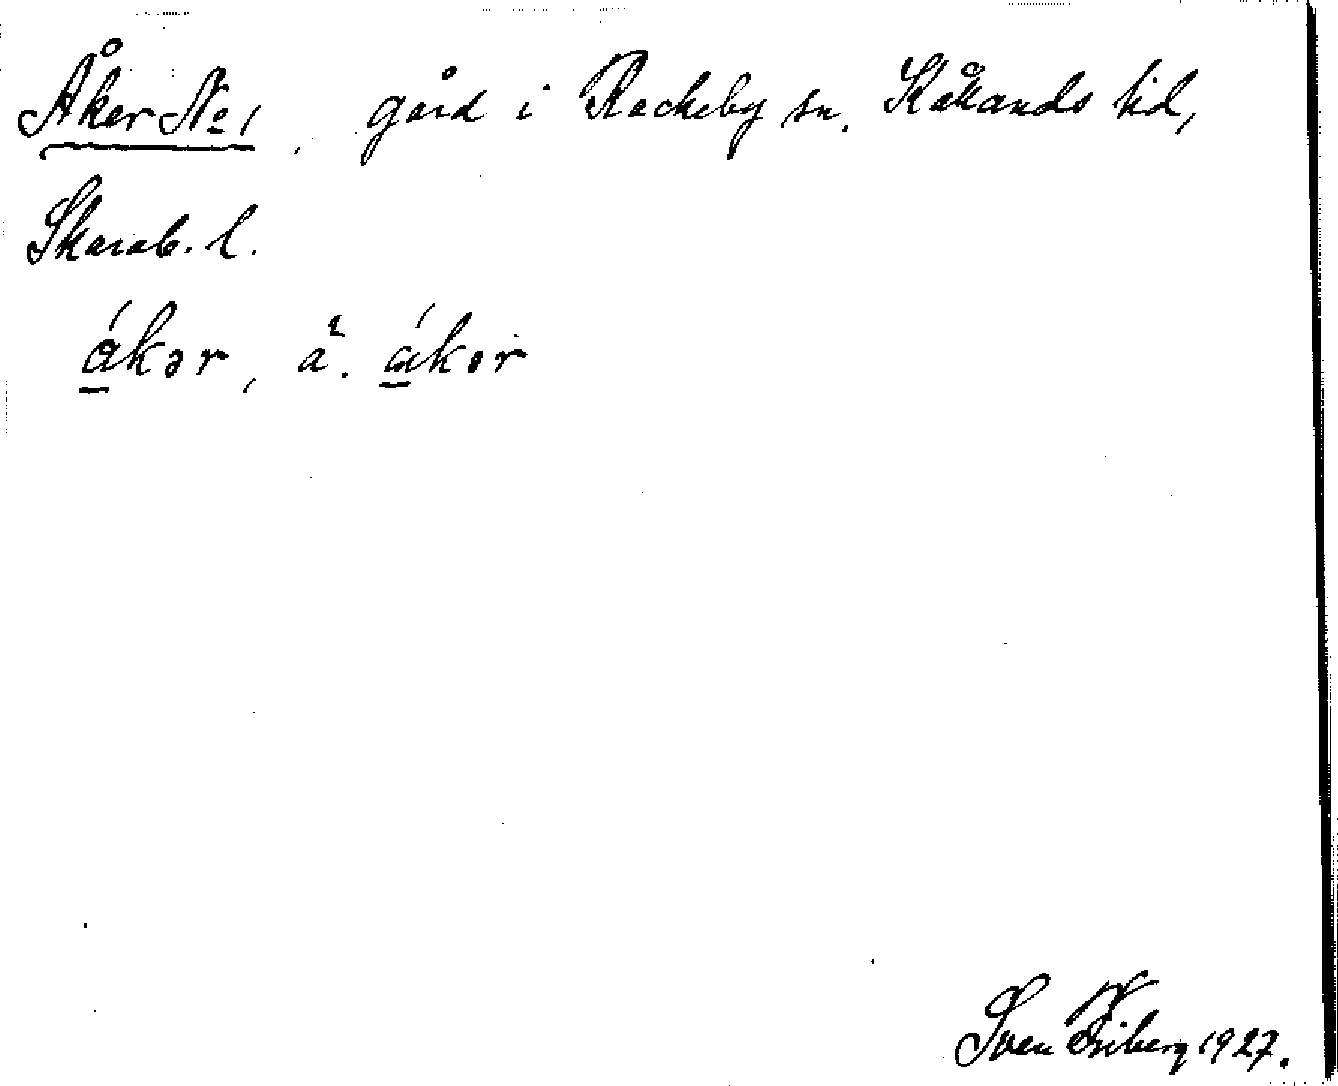 Åker No 1, gård i Rackeby sn. Kållands hd,
Skarab. l.
ákər, å. ákər
Sven Friberg 1927.